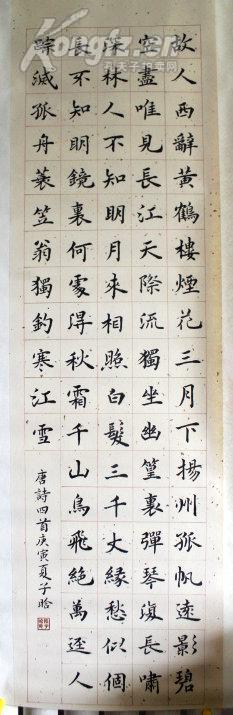 故人西辭黃鶴樓煙花三月下揚州孤帆遠影碧
空盡唯見長江天際流獨坐幽篁裏彈琴復長嘯
深林人不知明月來相照白髮三千丈緣愁似個
長不知明鏡裏何處得秋霜千山鳥飛絕萬逕人
蹤滅孤舟蓑笠翁獨釣寒江雪
唐詩四首庚寅夏子晗